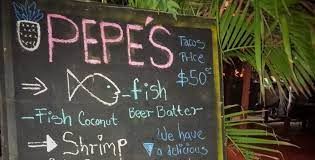 PEPE'S
Tacos
Price
$50
fish
-Fish Coconut Beer Batter
Shrimp
We have
a delicious